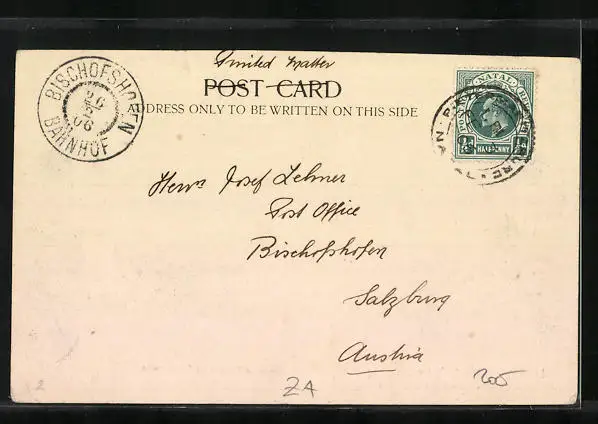 Printed Matter
POST CARD
ADDRESS ONLY TO BE WRITTEN ON THIS SIDE
BISCHOFSHOFEN
26
2
06
BAHNHOF
NATAL
POSTAGE
½d HALFPENNY ½d
Herrn Josef Lehner
Post Office
Bischofshofen
Salzburg
Austria
ZA
200
2